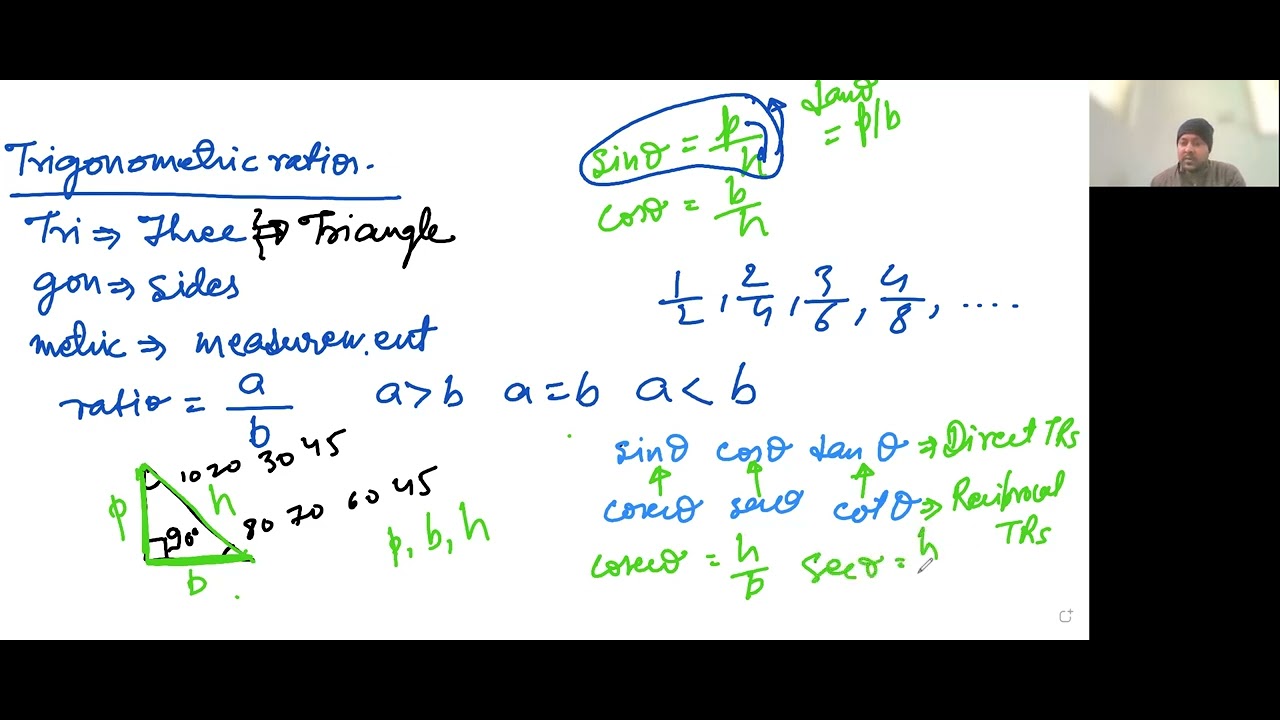 Trigonometric ratios.
Tri ⇒ Three } ⇒ Triangle
gon ⇒ sides
metric ⇒ measurement
ratio = a/b a>b a=b a<b
10 20 30 45
80 70 60 45
p h 90° b
p, b, h
sinθ = p/h
tanθ
= p/b
cosθ = b/h
1/2, 2/4, 3/6, 4/8, ....
sinθ cosθ tanθ ⇒ Direct TRs
cosecθ secθ cotθ ⇒ Reciprocal
TRs
cosecθ = h/p secθ = h